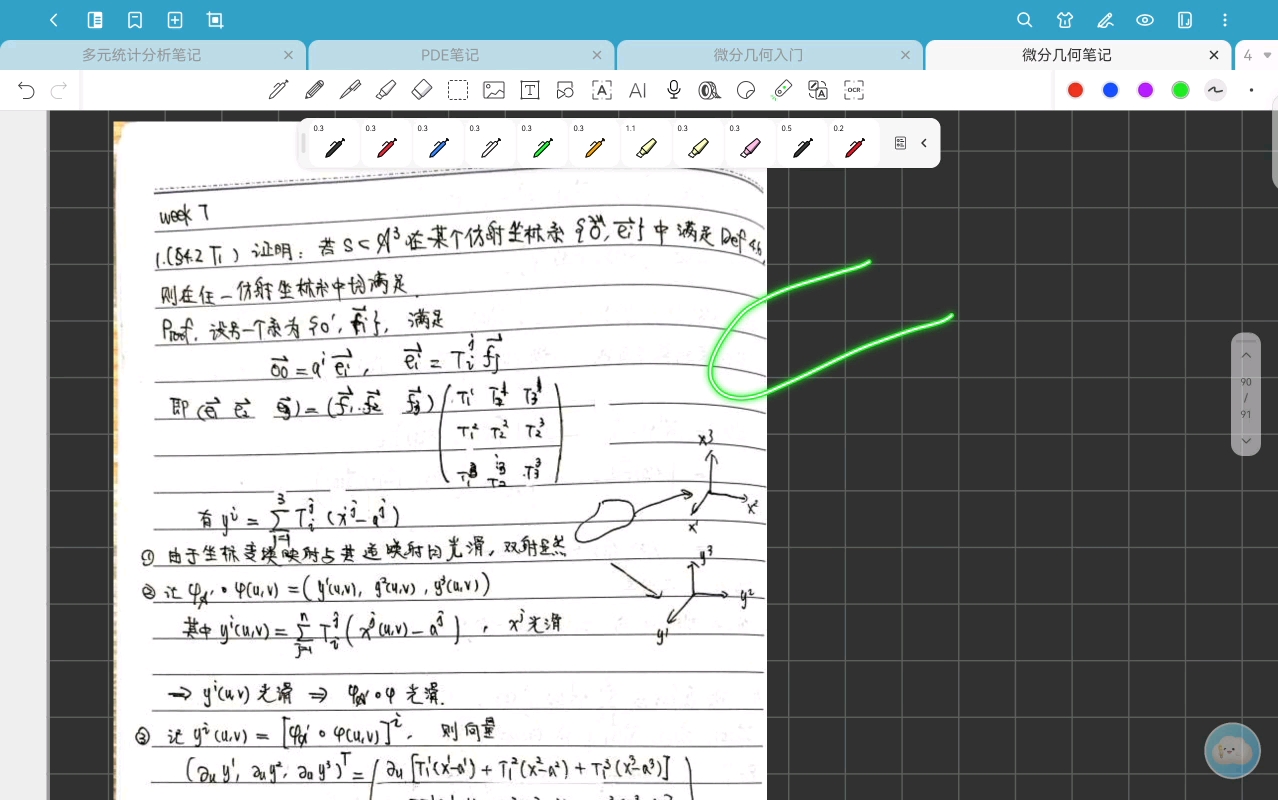 多元统计分析笔记
PDE笔记
微分几何入门
微分几何笔记
4
AI
OCR
0.3 0.3 0.3 0.3 0.3 0.3 1.1 0.3 0.3 0.5 0.2
90
/
91
week 7
1.(§4.2 T1) 证明: 若 S⊂A³ 在某个仿射坐标系 {O, e⃗i} 中满足 Def 4.
则在任一仿射坐标系中均满足.
Proof. 设另一个系为 {o', f⃗i}, 满足
= aⁱ e⃗i, e⃗i = Tᵢʲ f⃗j
即 (e⃗1 e⃗2 e⃗3) = (f⃗1 f⃗2 f⃗3)
T₁¹
T₁² T₂² T₂³
T₃³
x³
有 yⁱ = Σ³ⱼ₌₁ Tᵢʲ (xʲ - aʲ)
x²
x¹
① 由于坐标变换映射与其逆映射均光滑, 双射显然
y³
② 记 φA'∘φ(u,v) = (y¹(u,v), y²(u,v), y³(u,v))
y²
其中 yⁱ(u,v) = Σⁿⱼ₌₁ Tᵢʲ (xʲ(u,v) - aʲ), xʲ光滑
y¹
⇒ yⁱ(u,v) 光滑 ⇒ φA'∘φ 光滑.
③ 记 yⁱ(u,v) = [φA'∘φ(u,v)]ⁱ, 则向量
(∂u y¹, ∂u y², ∂u y³)ᵀ = ( ∂u [T₁¹(x¹-a¹) + T₁²(x²-a²) + T₁³(x³-a³)] )